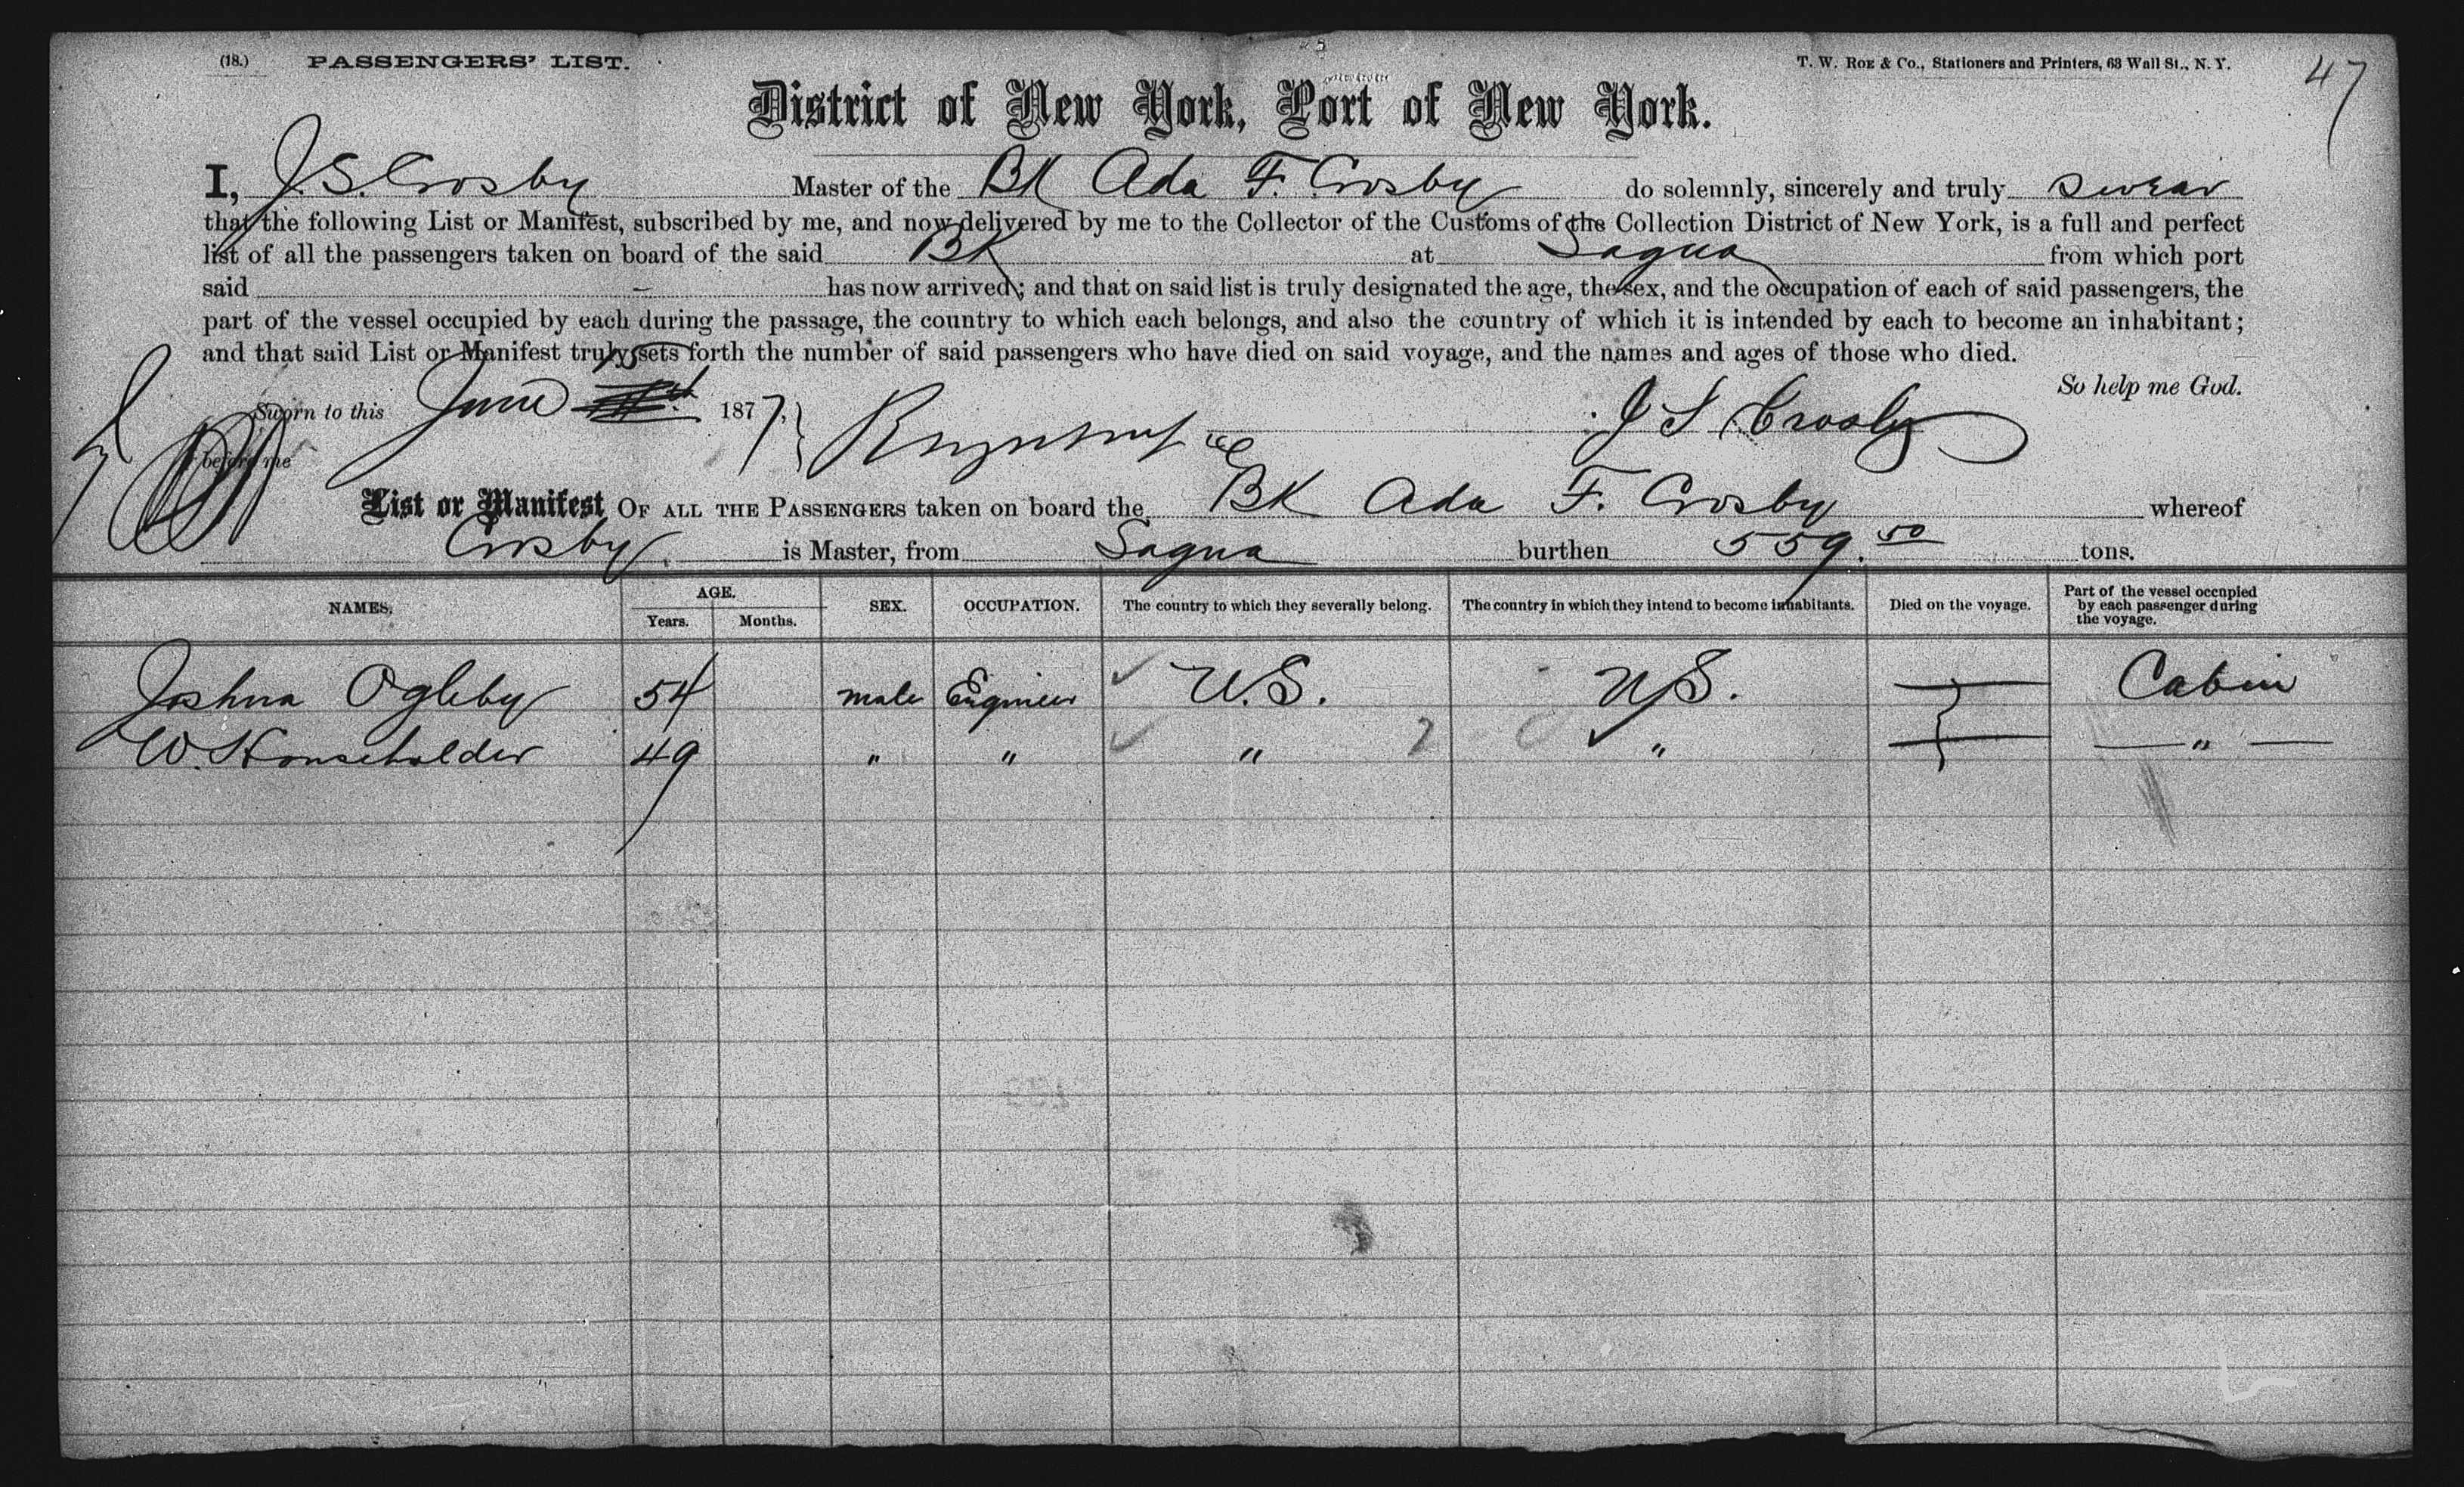 (18.) PASSENGERS' LIST. T. W. ROE & Co., Stationers and Printers, 63 Wall St., N. Y. 47
District of New York, Port of New York.
I, J. S. Crosby Master of the BK Ada F. Crosby do solemnly, sincerely and truly swear
that the following List or Manifest, subscribed by me, and now delivered by me to the Collector of the Customs of the Collection District of New York, is a full and perfect
list of all the passengers taken on board of the said BK at Sagua from which port
said — has now arrived; and that on said list is truly designated the age, the sex, and the occupation of each of said passengers, the
part of the vessel occupied by each during the passage, the country to which each belongs, and also the country of which it is intended by each to become an inhabitant;
and that said List or Manifest truly sets forth the number of said passengers who have died on said voyage, and the names and ages of those who died.
So help me God.
Sworn to this June 15 1877. J S Crosby
before me
List or Manifest OF ALL THE PASSENGERS taken on board the BK Ada F. Crosby whereof
Crosby is Master, from Sagua burthen 559.50 tons.
NAMES. AGE. Years. Months. SEX. OCCUPATION. The country to which they severally belong. The country in which they intend to become inhabitants. Died on the voyage. Part of the vessel occupied by each passenger during the voyage.
Joshua Ogleby 54 male Engineer U.S. U.S. — Cabin
W. Householder 49 " " " " — "